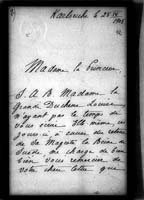 Karlsruhe le 28
Madame la Princesse,
S. A. R. Madame la
Grande Duchesse Louise
n'ayant pas le temps de
vous écrire Elle même ces
jours-ci, à cause du retour
de Sa Majesté la Reine de
Suède me charge de bien
vien vous remercier de
votre chère lettre que